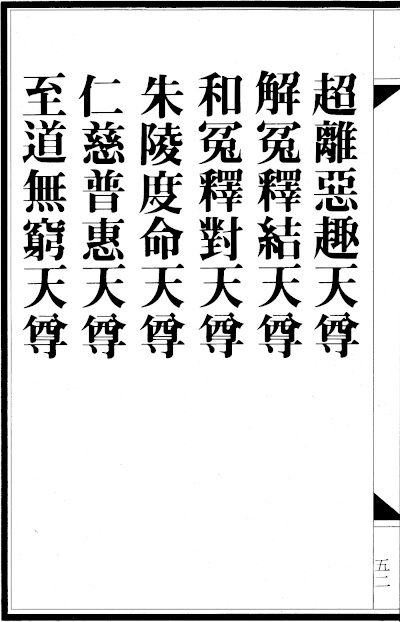 超離惡趣天尊
解冤釋結天尊
和冤釋對天尊
朱陵度命天尊
仁慈普惠天尊
至道無窮天尊
五二